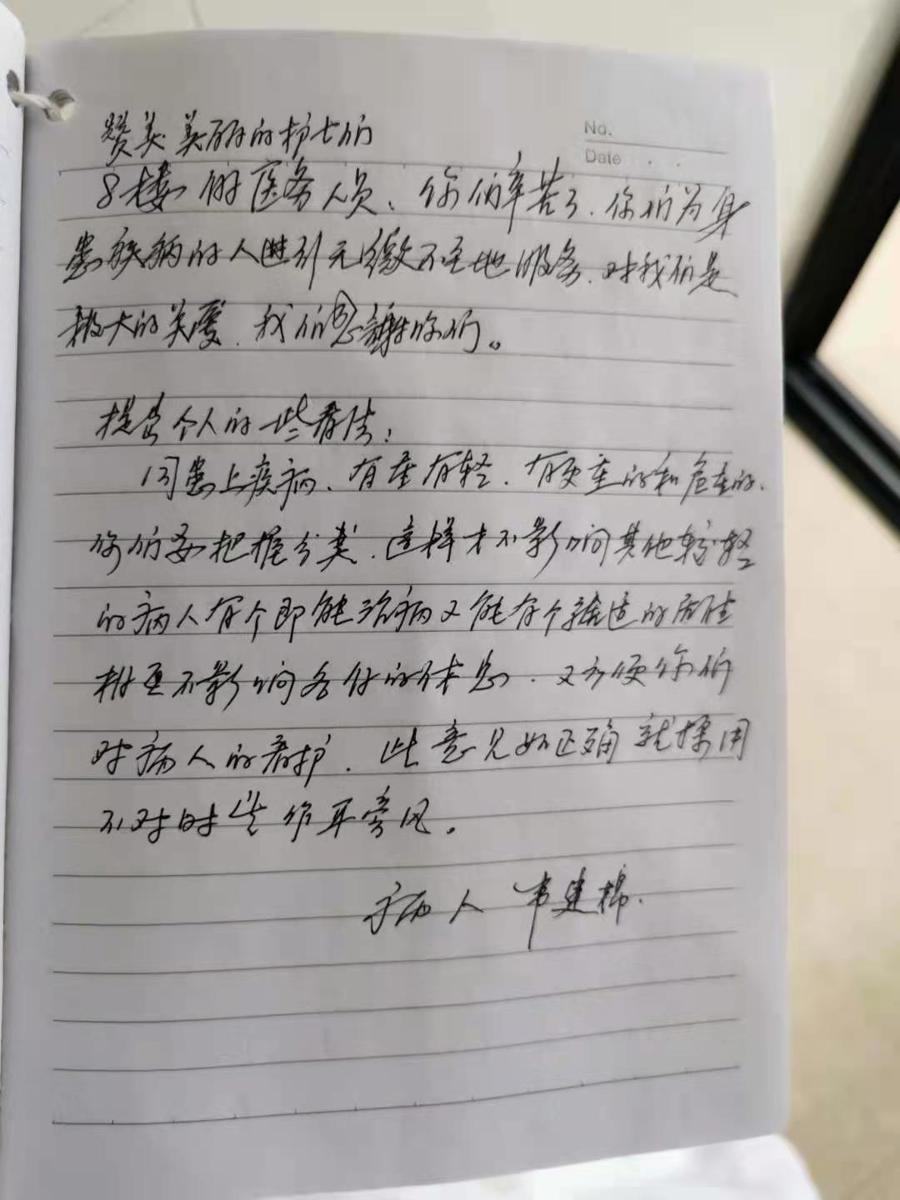 赞美美丽的护士们
No.
Date
8楼的医务人员、你们辛苦了、你们为身
患疾病的人进引无微不至地服务、对我们是
极大的关爱、我们感谢你们。
提出个人的一些看法：
同患上疾病、有重有轻、有更重的和危重的、
你们要把握分类、这样才不影响其他较轻
的病人有个即能治病又能有个舒适的
相互不影响各位的休息、又方便你们
对病人的看护、此意见如正确就採用
不对时当作耳旁风。
病人 韦建棉